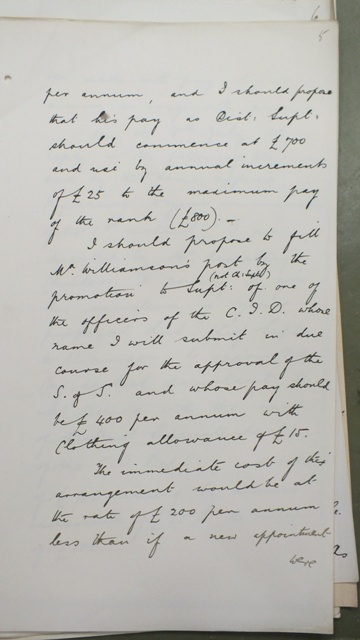 5
per annum, and I should propose
that his pay as Dist: Supt:
should commence at £700
and rise by annual increments
of £25 to the maximum pay
of the rank (£800). –
I should propose to fill
Mr. Williamson's post by the
(not Ch: Supt)
promotion to Supt: of one of
the officers of the C. I. D. whose
name I will submit in due
course for the approval of the
S. of S. and whose pay should
be £400 per annum with
Clothing allowance of £15.
The immediate cost of this
arrangement would be at
the rate of £200 per annum
less than if a new appointment
were